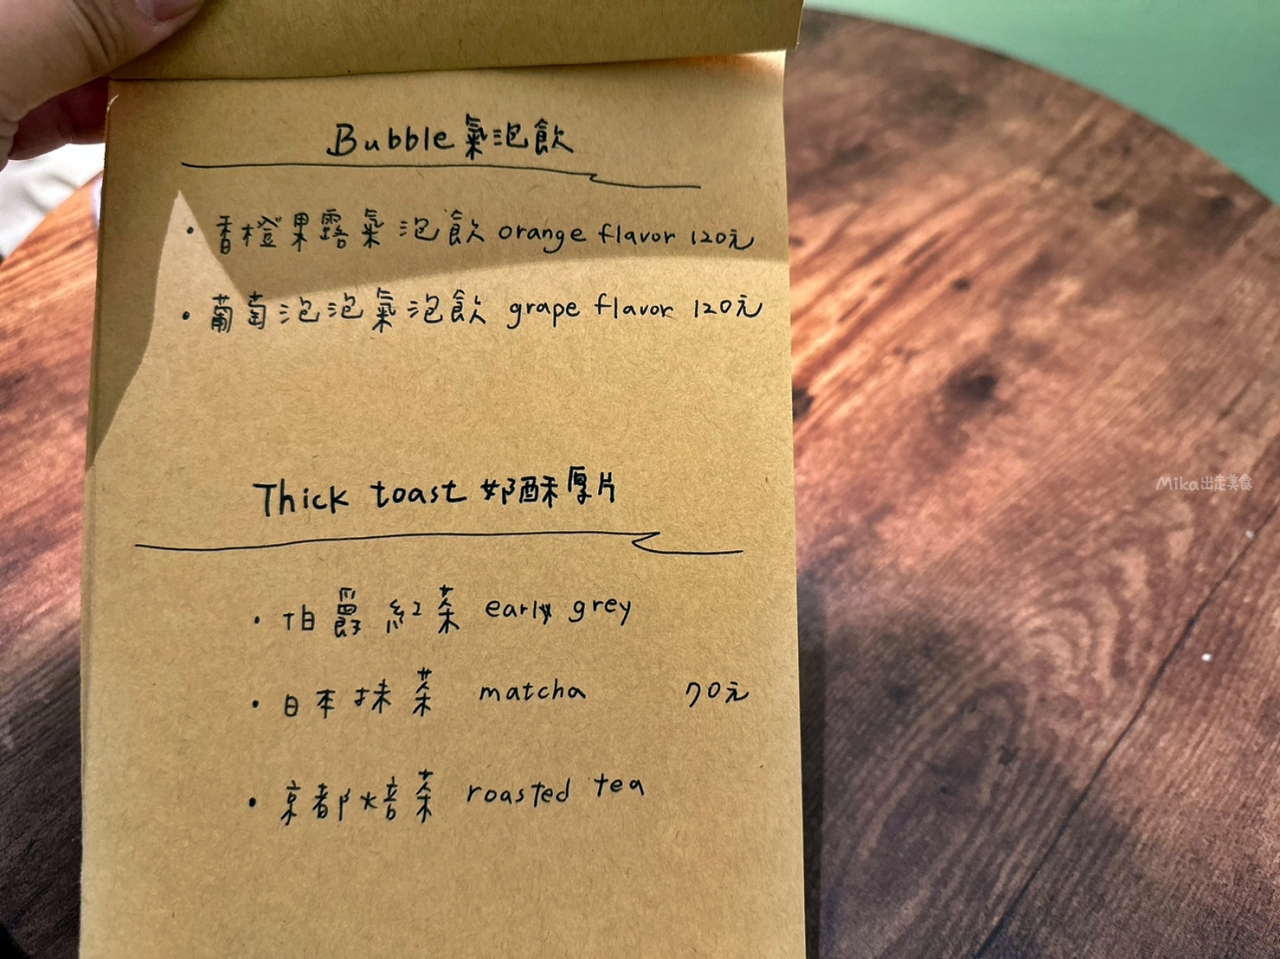 Bubble 氣泡飲
• 香橙果露氣泡飲 orange flavor 120元
• 葡萄泡泡氣泡飲 grape flavor 120元
Thick toast 奶酥厚片
• 伯爵紅茶 early grey
• 日本抹茶 matcha 70元
• 京都焙茶 roasted tea
Mika出走美食